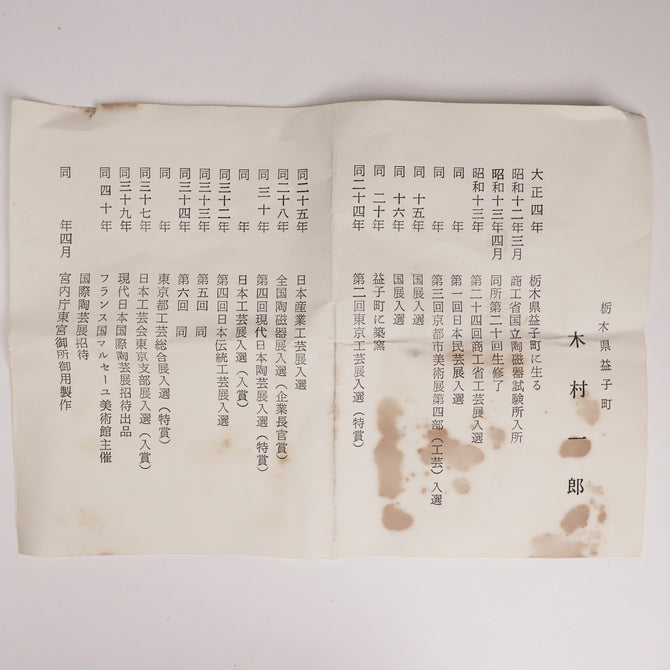 栃木県益子町
木村一郎
大正四年 栃木県益子町に生る
昭和十二年三月 商工省国立陶磁器試験所入所
昭和十三年四月 同所第二十回生修了
昭和十三年 第二十四回商工省工芸展入選
同 年 第一回日本民芸展入選
同 年 第三回京都市美術展第四部(工芸)入選
同 十五年 国展入選
同 十六年 国展入選
同 二十年 益子町に築窯
同二十四年 第二回東京工芸展入選(特賞)
同二十五年 日本産業工芸展入選
同二十八年 全国陶磁器展入選(企業長官賞)
同 三十年 第四回現代日本陶芸展入選(特賞)
同 年 日本工芸展入選(入賞)
同三十二年 第四回日本伝統工芸展入選
同三十三年 第五回 同
同三十四年 第六回 同
同 年 東京都工芸総合展入選(特賞)
同三十七年 日本工芸会東京支部展入選(入賞)
同三十九年 現代日本国際陶芸展招待出品
同 四十年 フランス国マルセーユ美術館主催
国際陶芸展招待
同 年四月 宮内庁東宮御所御用製作